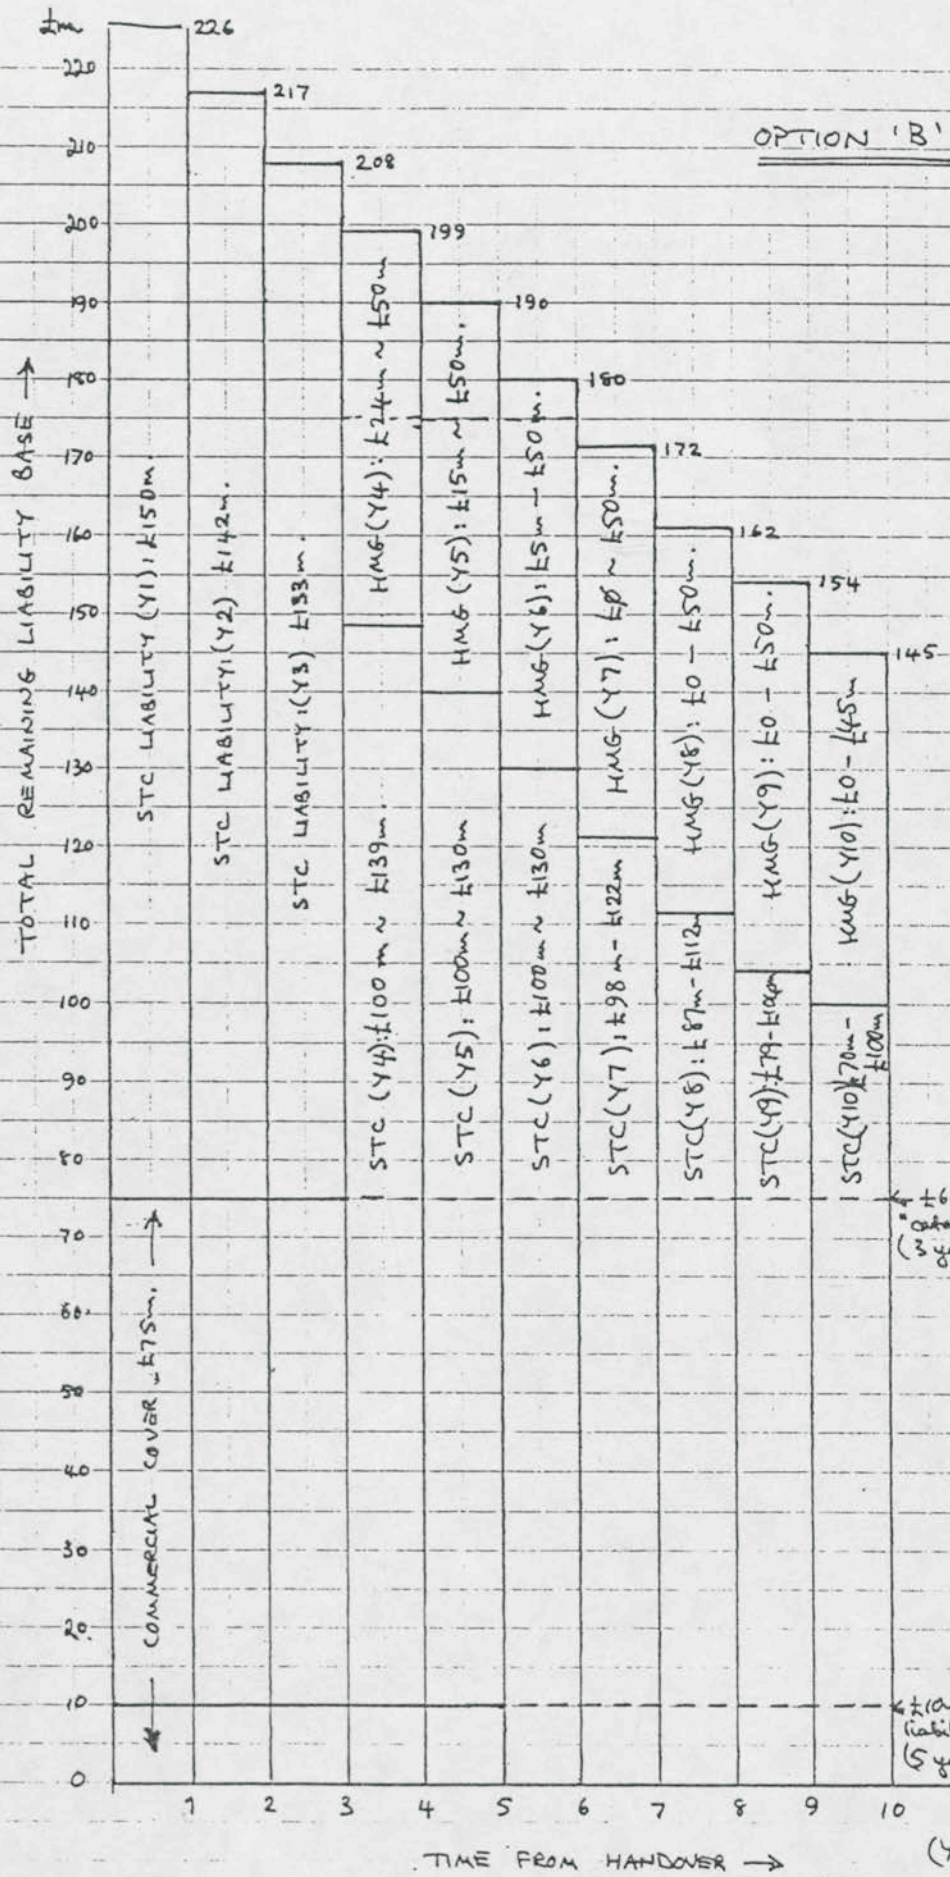 £m
226
220
217
210
OPTION 'B'
208
200
199
190
190
180
180
170
172
160
162
150
154
140
145
130
120
110
100
90
80
70
60
50
40
30
20
10
0
TOTAL REMAINING LIABILITY BASE →
STC LIABILITY (Y1): £150m.
STC LIABILITY: (Y2) £142m.
STC LIABILITY: (Y3) £133m.
HMG (Y4): £24m ~ £50m
STC (Y4): £100m ~ £139m.
HMG (Y5): £15m ~ £50m.
STC (Y5): £100m ~ £130m
HMG (Y6): £5m – £50m.
STC (Y6): £100m ~ £130m
HMG (Y7): £0 ~ £50m.
STC (Y7): £98m – £122m
HMG (Y8): £0 – £50m.
STC (Y8): £87m – £112m
HMG (Y9): £0 – £50m.
STC (Y9): £79 – £104m
HMG (Y10): £0 – £45m
STC (Y10) £70m –
£100m
← COMMERCIAL COVER £75m. →
← £6
(3
← £10
liabil
(5 y
1 2 3 4 5 6 7 8 9 10
TIME FROM HANDOVER →